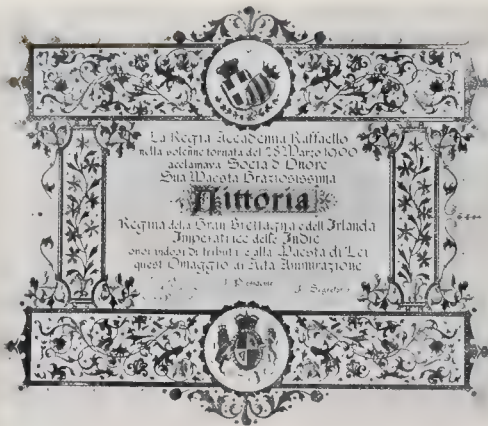 La Regia Accademia Raffaello
nella solenne tornata del 28 Marzo 1900
acclamava Socia d'Onore
Sua Maestà Graziosissima
Vittoria
Regina della Gran Brettagna e dell'Irlanda
Imperatrice delle Indie
onorandosi di tributare alla Maestà di Lei
quest'Omaggio di Alta Ammirazione
Il Presidente
Il Segretario